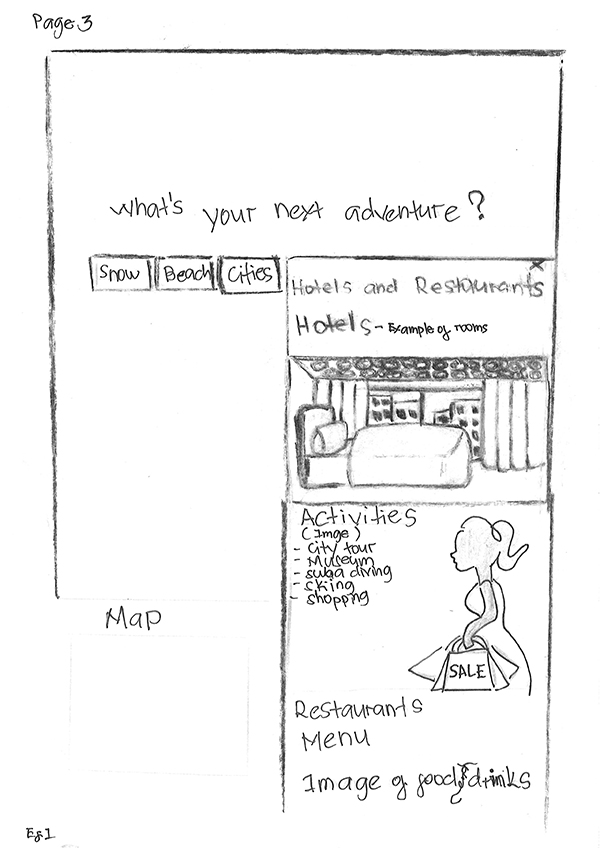 Page 3
What's your next adventure?
Snow
Beach
Cities
X
Hotels and Restaurants
Hotels - Example of rooms
Activities
(Imge)
- City tour
- Museum
- suba diving
- sking
- shopping
SALE
Map
Restaurants
Menu
Image of food & drinks
Eg1